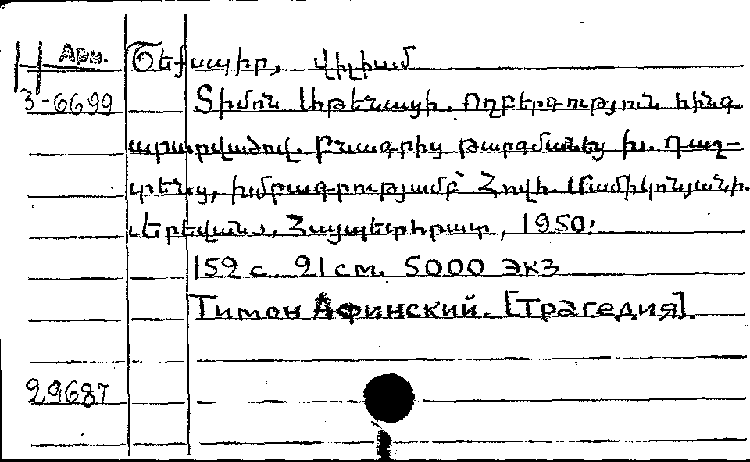 Арм. Շեքսպիր, Վիլիամ
3-6699 Տիմոն Աթենացի. Ողբերգություն հինգ
արարվածով. Բնագրից թարգմանեց Խ. Դաշ-
տենց, խմբագրությամբ՝ Հովհ. Մամիկոնյանի.
Երեվան, Հայպետհրատ, 1950:
152 с. 21 см. 5000 экз
Тимон Афинский. [Трагедия].
29687